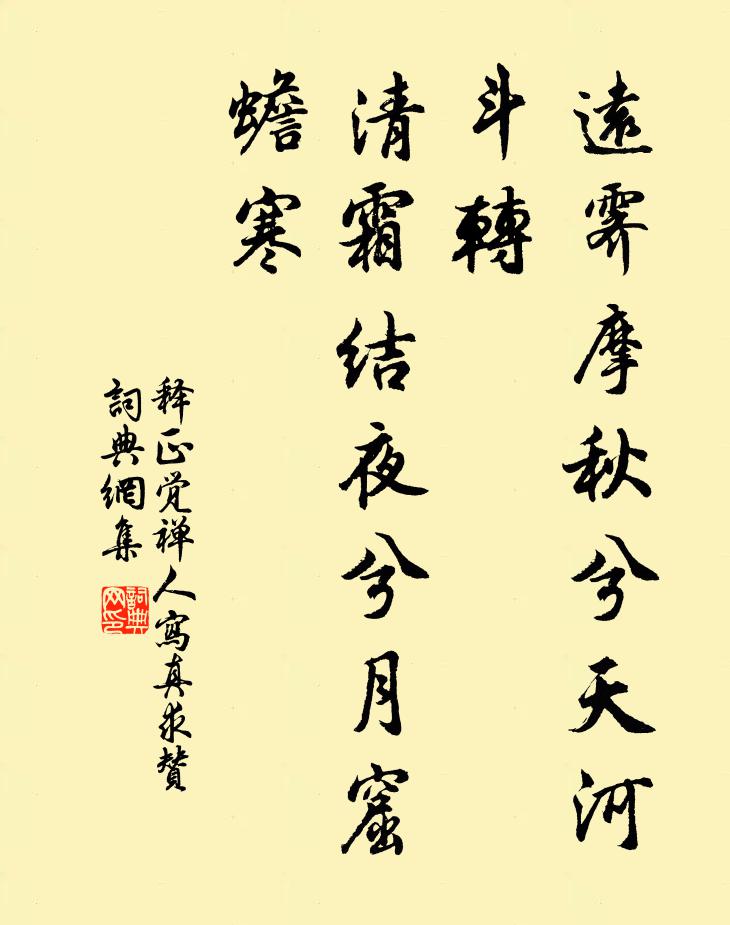 遠霽摩秋兮天河
斗轉
清霜結夜兮月窟
蟾寒
释正觉禅人寫真求賛
詞典網集
詞典網印